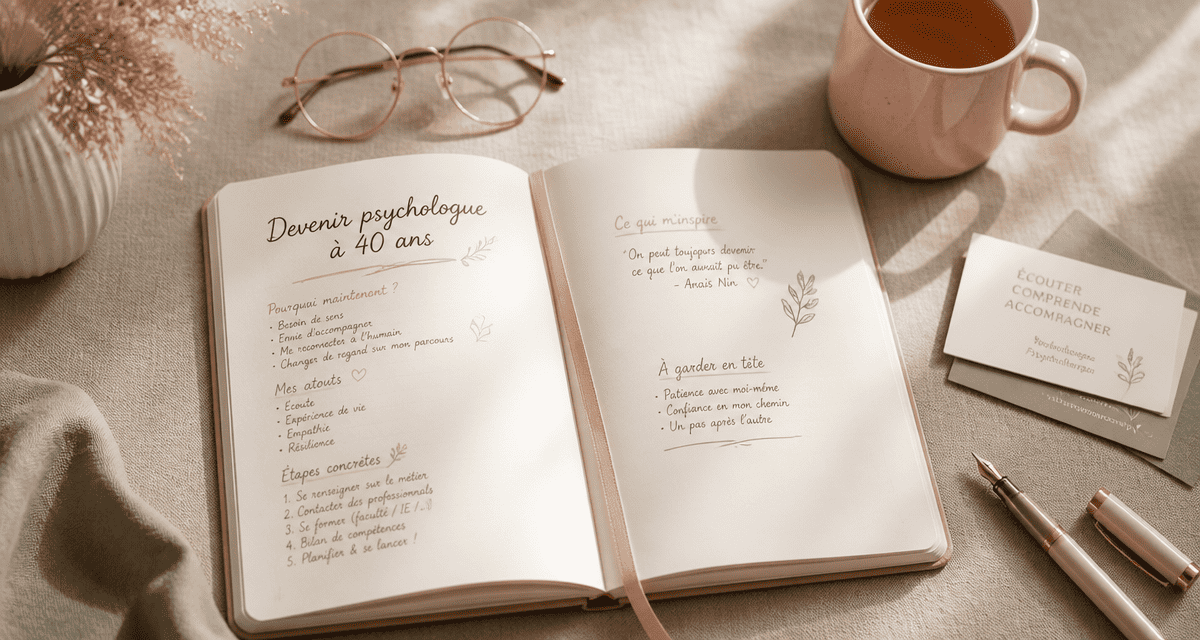 Devenir psychologue
à 40 ans
Pourquoi maintenant ?
• Besoin de sens
• Envie d'accompagner
• Me reconnecter à l'humain
• Changer de regard sur mon parcours
Mes atouts ♡
• Écoute
• Expérience de vie
• Empathie
• Résilience
Étapes concrètes
1. Se renseigner sur le métier
2. Contacter des professionnals
3. Se former (faculté / IE /...)
4. Bilan de compétences
5. Planifier & se lancer !
Ce qui m'inspire
"On peut toujours devenir
ce que l'on aurait pu être."
- Anaïs Nin ♡
À garder en tête
• Patience avec moi-même
• Confiance en mon chemin
• Un pas après l'autre
ÉCOUTER
COMPRENDE
ACCOMRAGNER